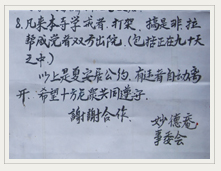 8.凡来本寺学戒者,打架,搞是非拉
帮成党者双号出院。(包括正在九十天
之中)
以上是夏安居公约,有违者自动离
开,希望十方尼众共同遵守。
謝謝合作。
妙德庵
事委会